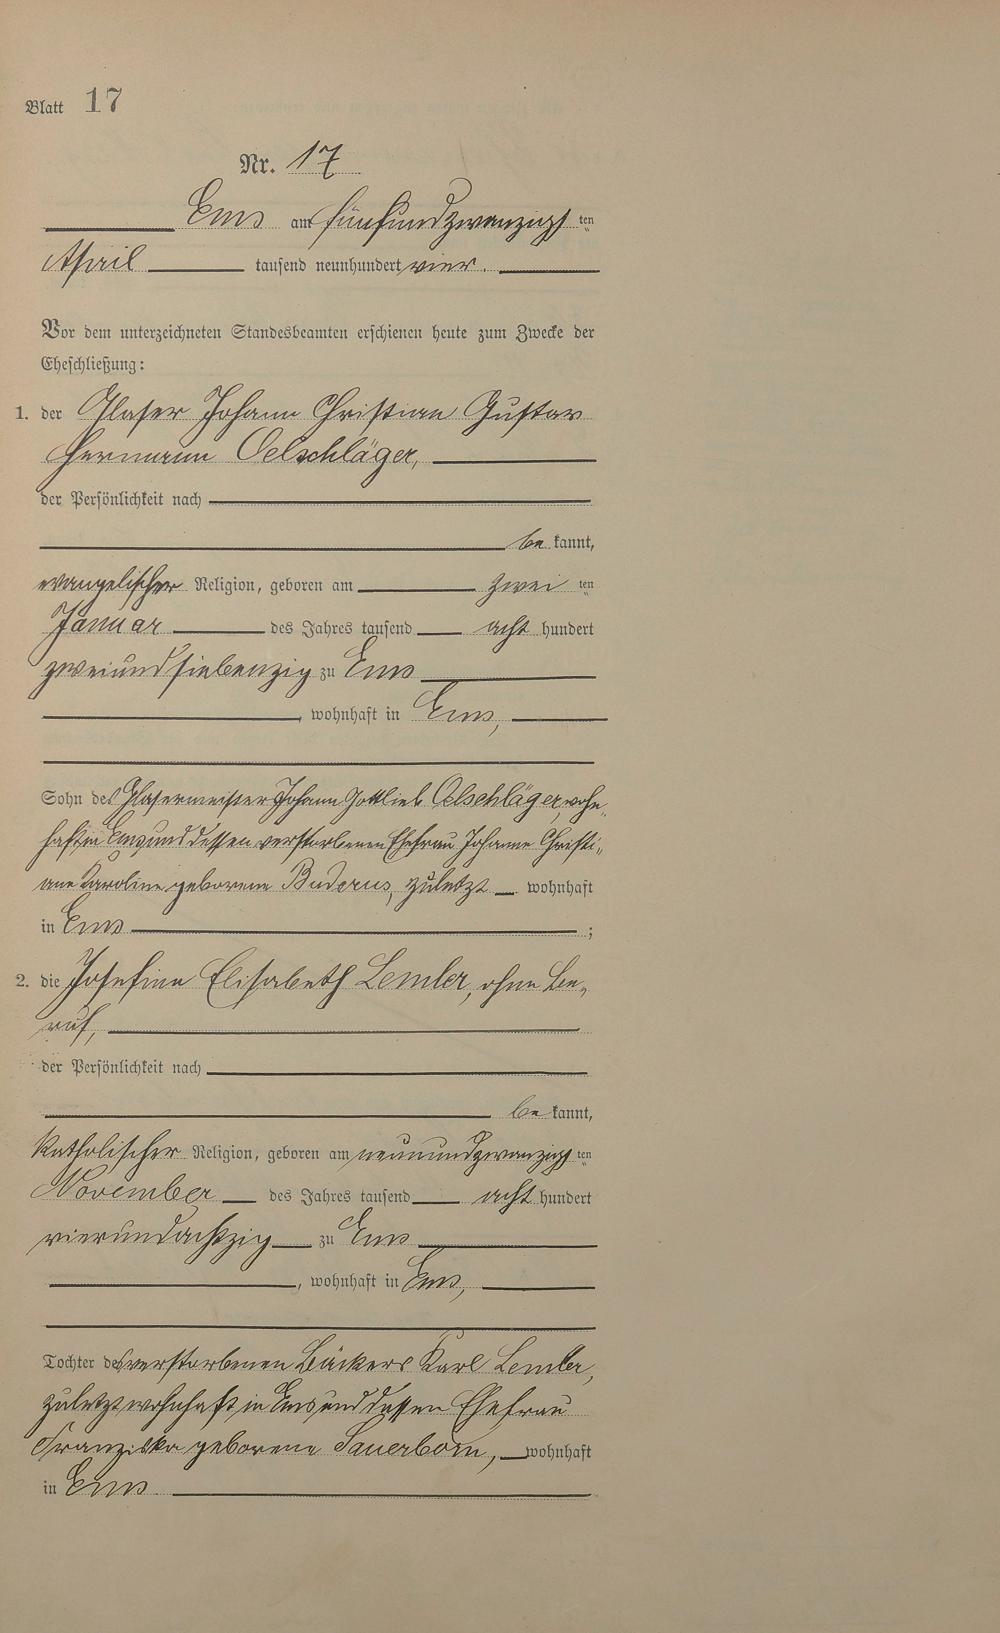 Blatt 17
Nr. 17
Ems am fünfundzwanzigs ten
April tausend neunhundert vier.
Vor dem unterzeichneten Standesbeamten erschienen heute zum Zwecke der
Eheschließung:
1. der Glaser Johann Christian Gustav
Hermann Oelschläger,
der Persönlichkeit nach
be kannt,
evangelischer Religion, geboren am zwei ten
Januar des Jahres tausend acht hundert
zweiundsiebenzig zu Ems
, wohnhaft in Ems,
Sohn des Glasermeister Johann Gottlieb Oelschläger, wohn-
haft in Ems und dessen verstorbenen Ehefrau Johanne Christi-
ane Karoline geborene Buderus, zuletzt wohnhaft
in Ems ;
2. die Josefine Elisabeth Lemler, ohne Be-
ruf,
der Persönlichkeit nach
be kannt,
katholischer Religion, geboren am neunundzwanzigs ten
November des Jahres tausend acht hundert
vierundachtzig zu Ems
, wohnhaft in Ems,
Tochter des verstorbenen Bäckers Karl Lemler,
zuletzt wohnhaft in Ems und dessen Ehefrau
Franziska geborene Sauerborn, wohnhaft
in Ems